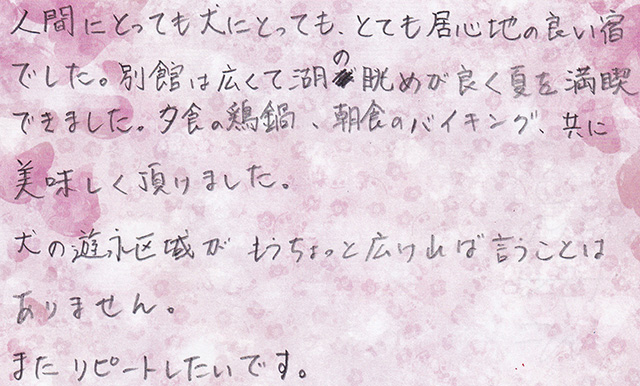 人間にとっても犬にとっても、とても居心地の良い宿
でした。別館は広くて湖の眺めが良く夏を満喫
できました。夕食の鶏鍋、朝食のバイキング、共に
美味しく頂けました。
犬の遊泳区域がもうちょっと広ければ言うことは
ありません。
またリピートしたいです。